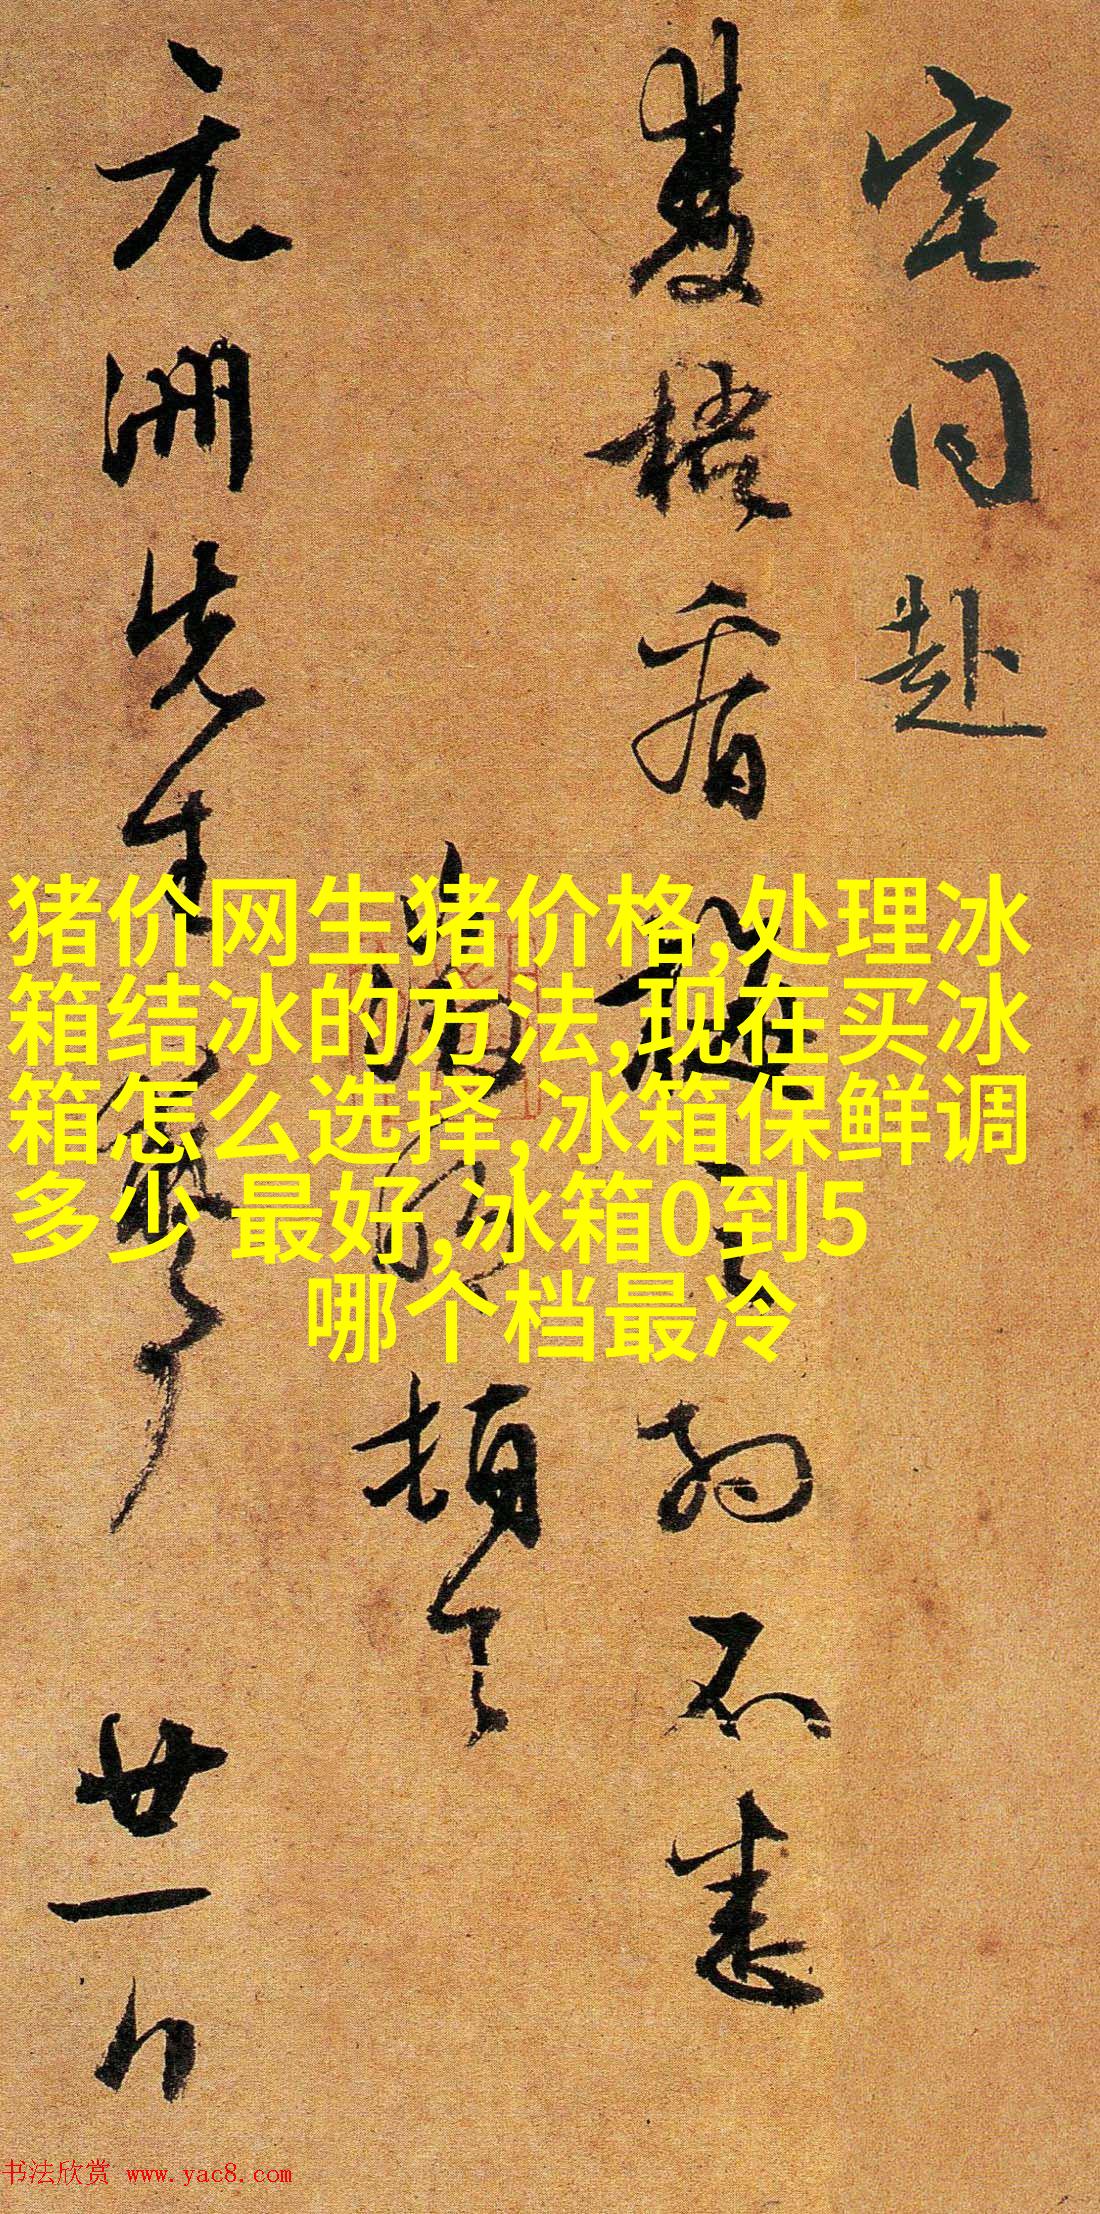 宅同赴
雙梧看
物不悉
頓首
元洲先生
廿一日
猪价网生猪价格,处理冰
箱结冰的方法,现在买冰
箱怎么选择,冰箱保鲜调
多少 最好,冰箱0到5
哪个档最冷
书法欣赏 www.yac8.com